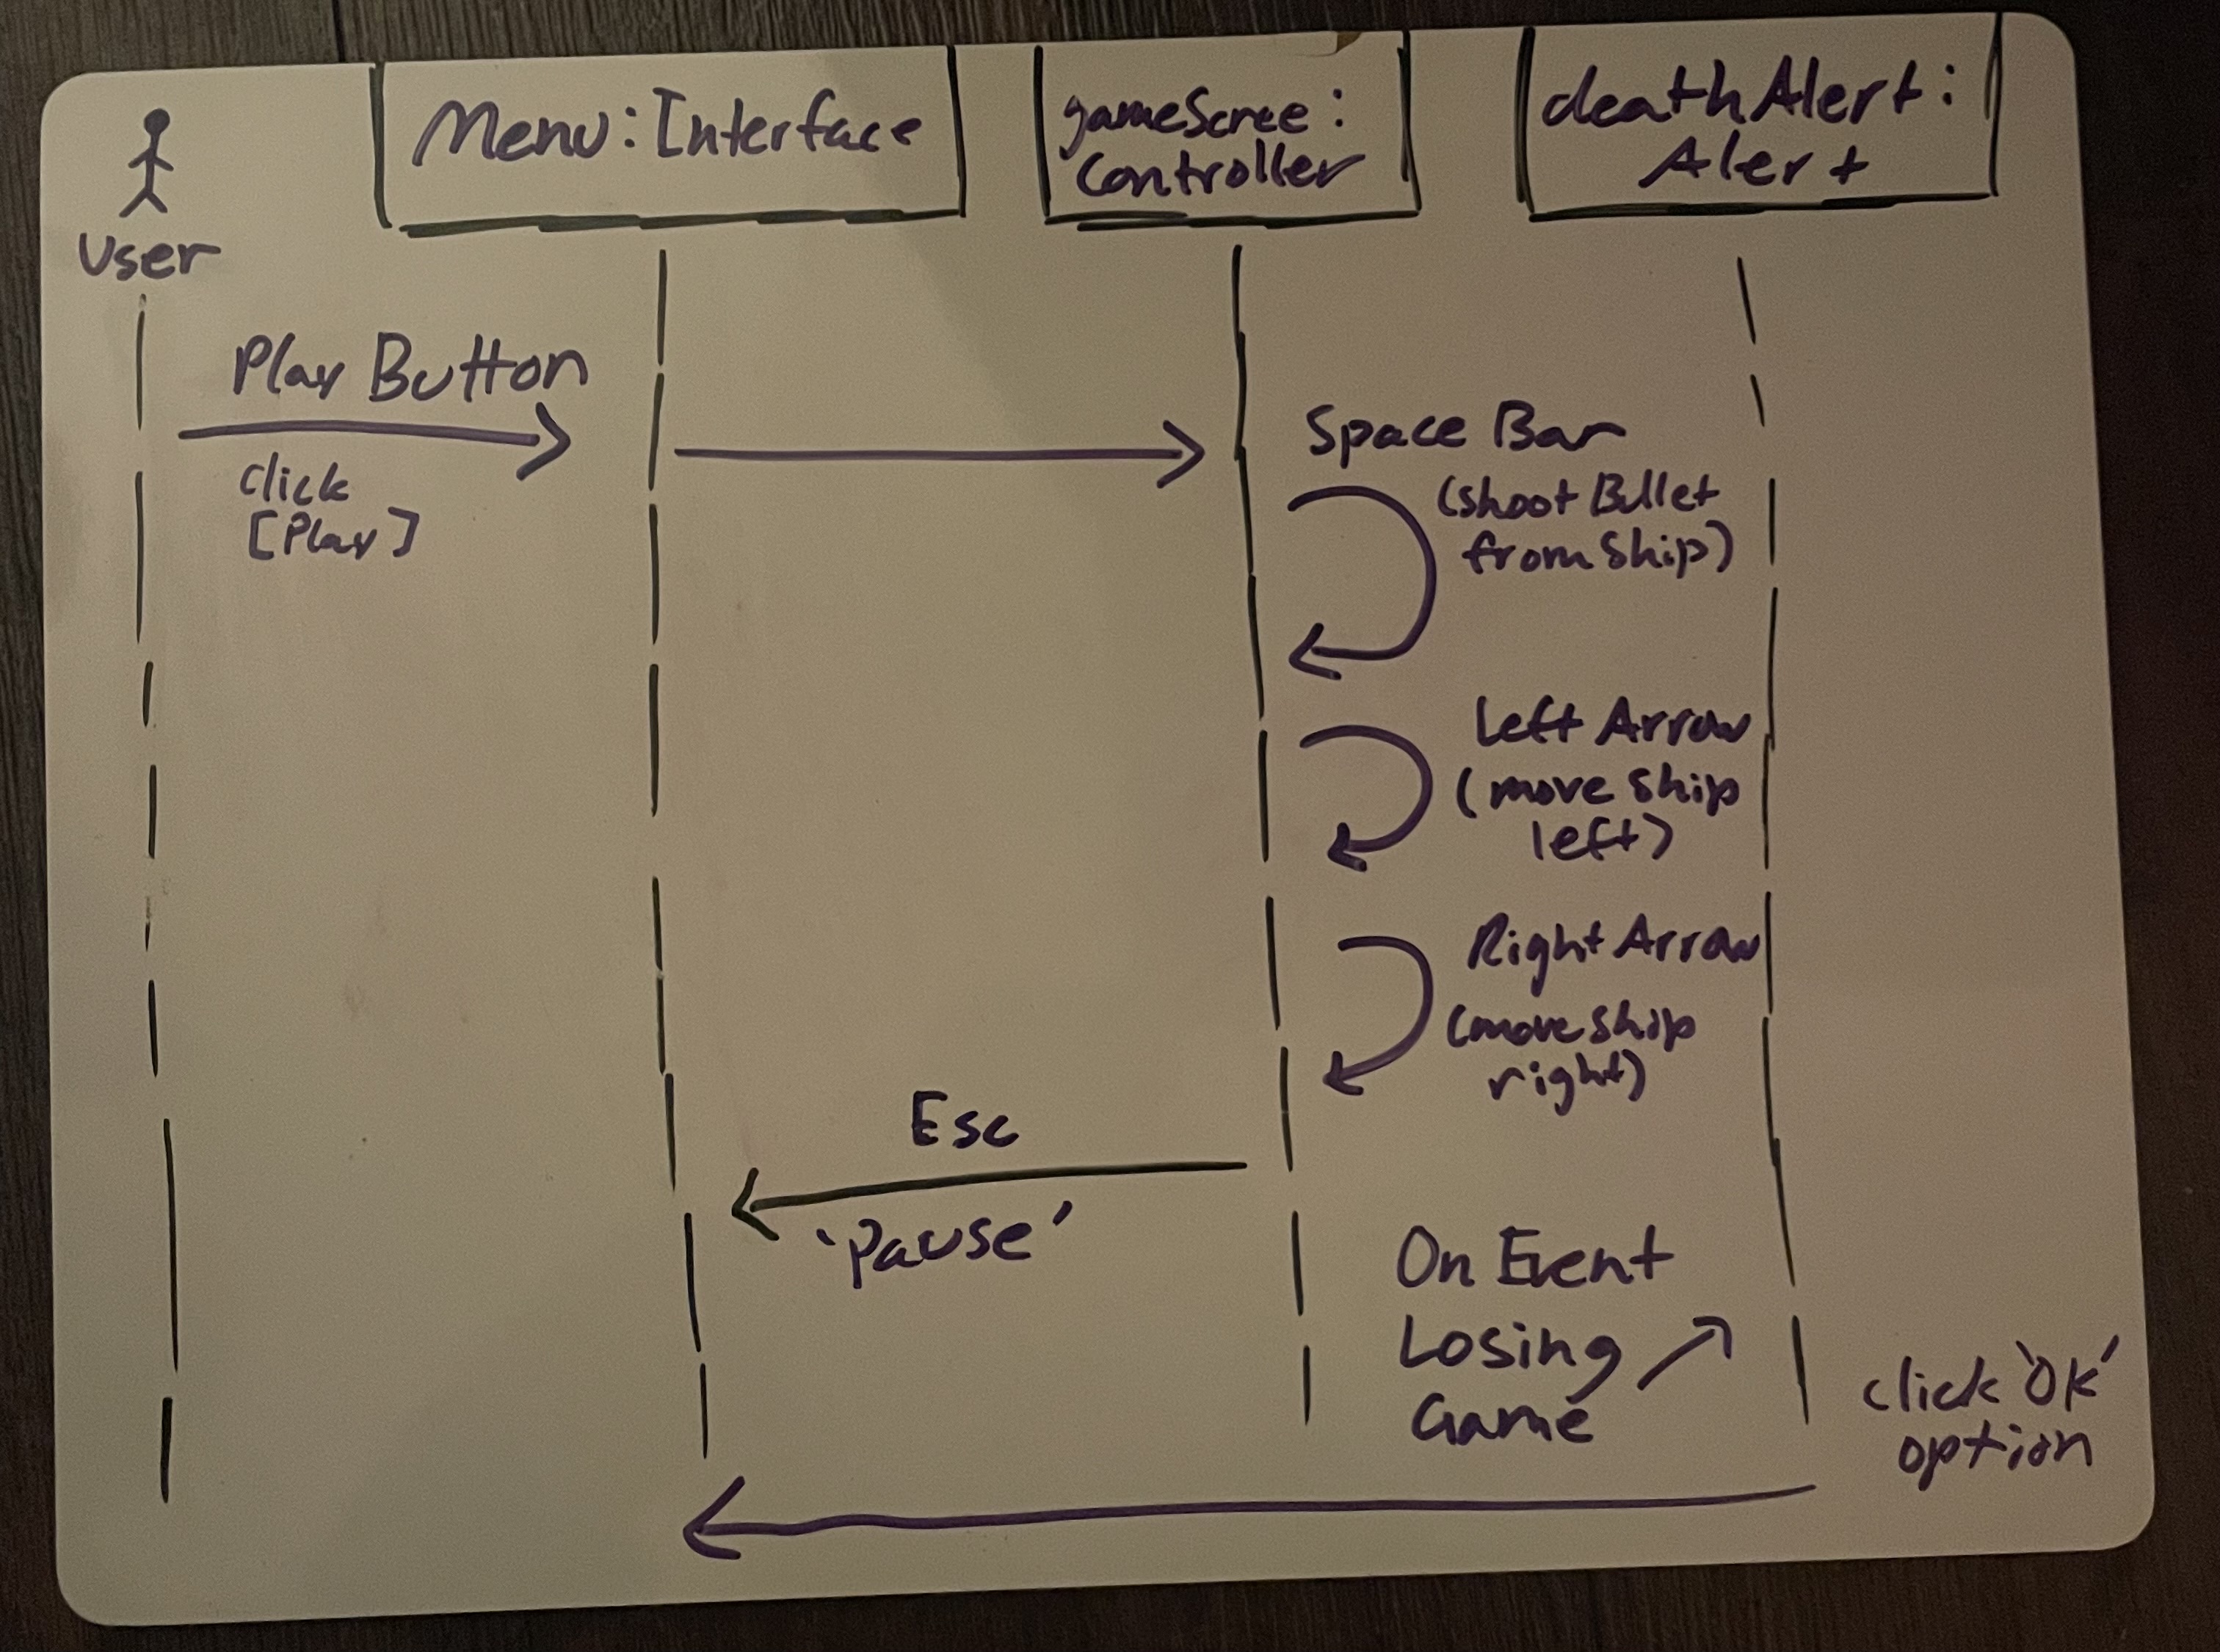 User
Menu: Interface
gameScree:
Controller
deathAlert:
Alert
Play Button
click
[Play]
Space Bar
(shoot Bullet
from Ship)
Left Arrow
(move ship
left)
Right Arrow
(move ship
right)
Esc
'Pause'
On Event
Losing
Game
click 'OK'
option